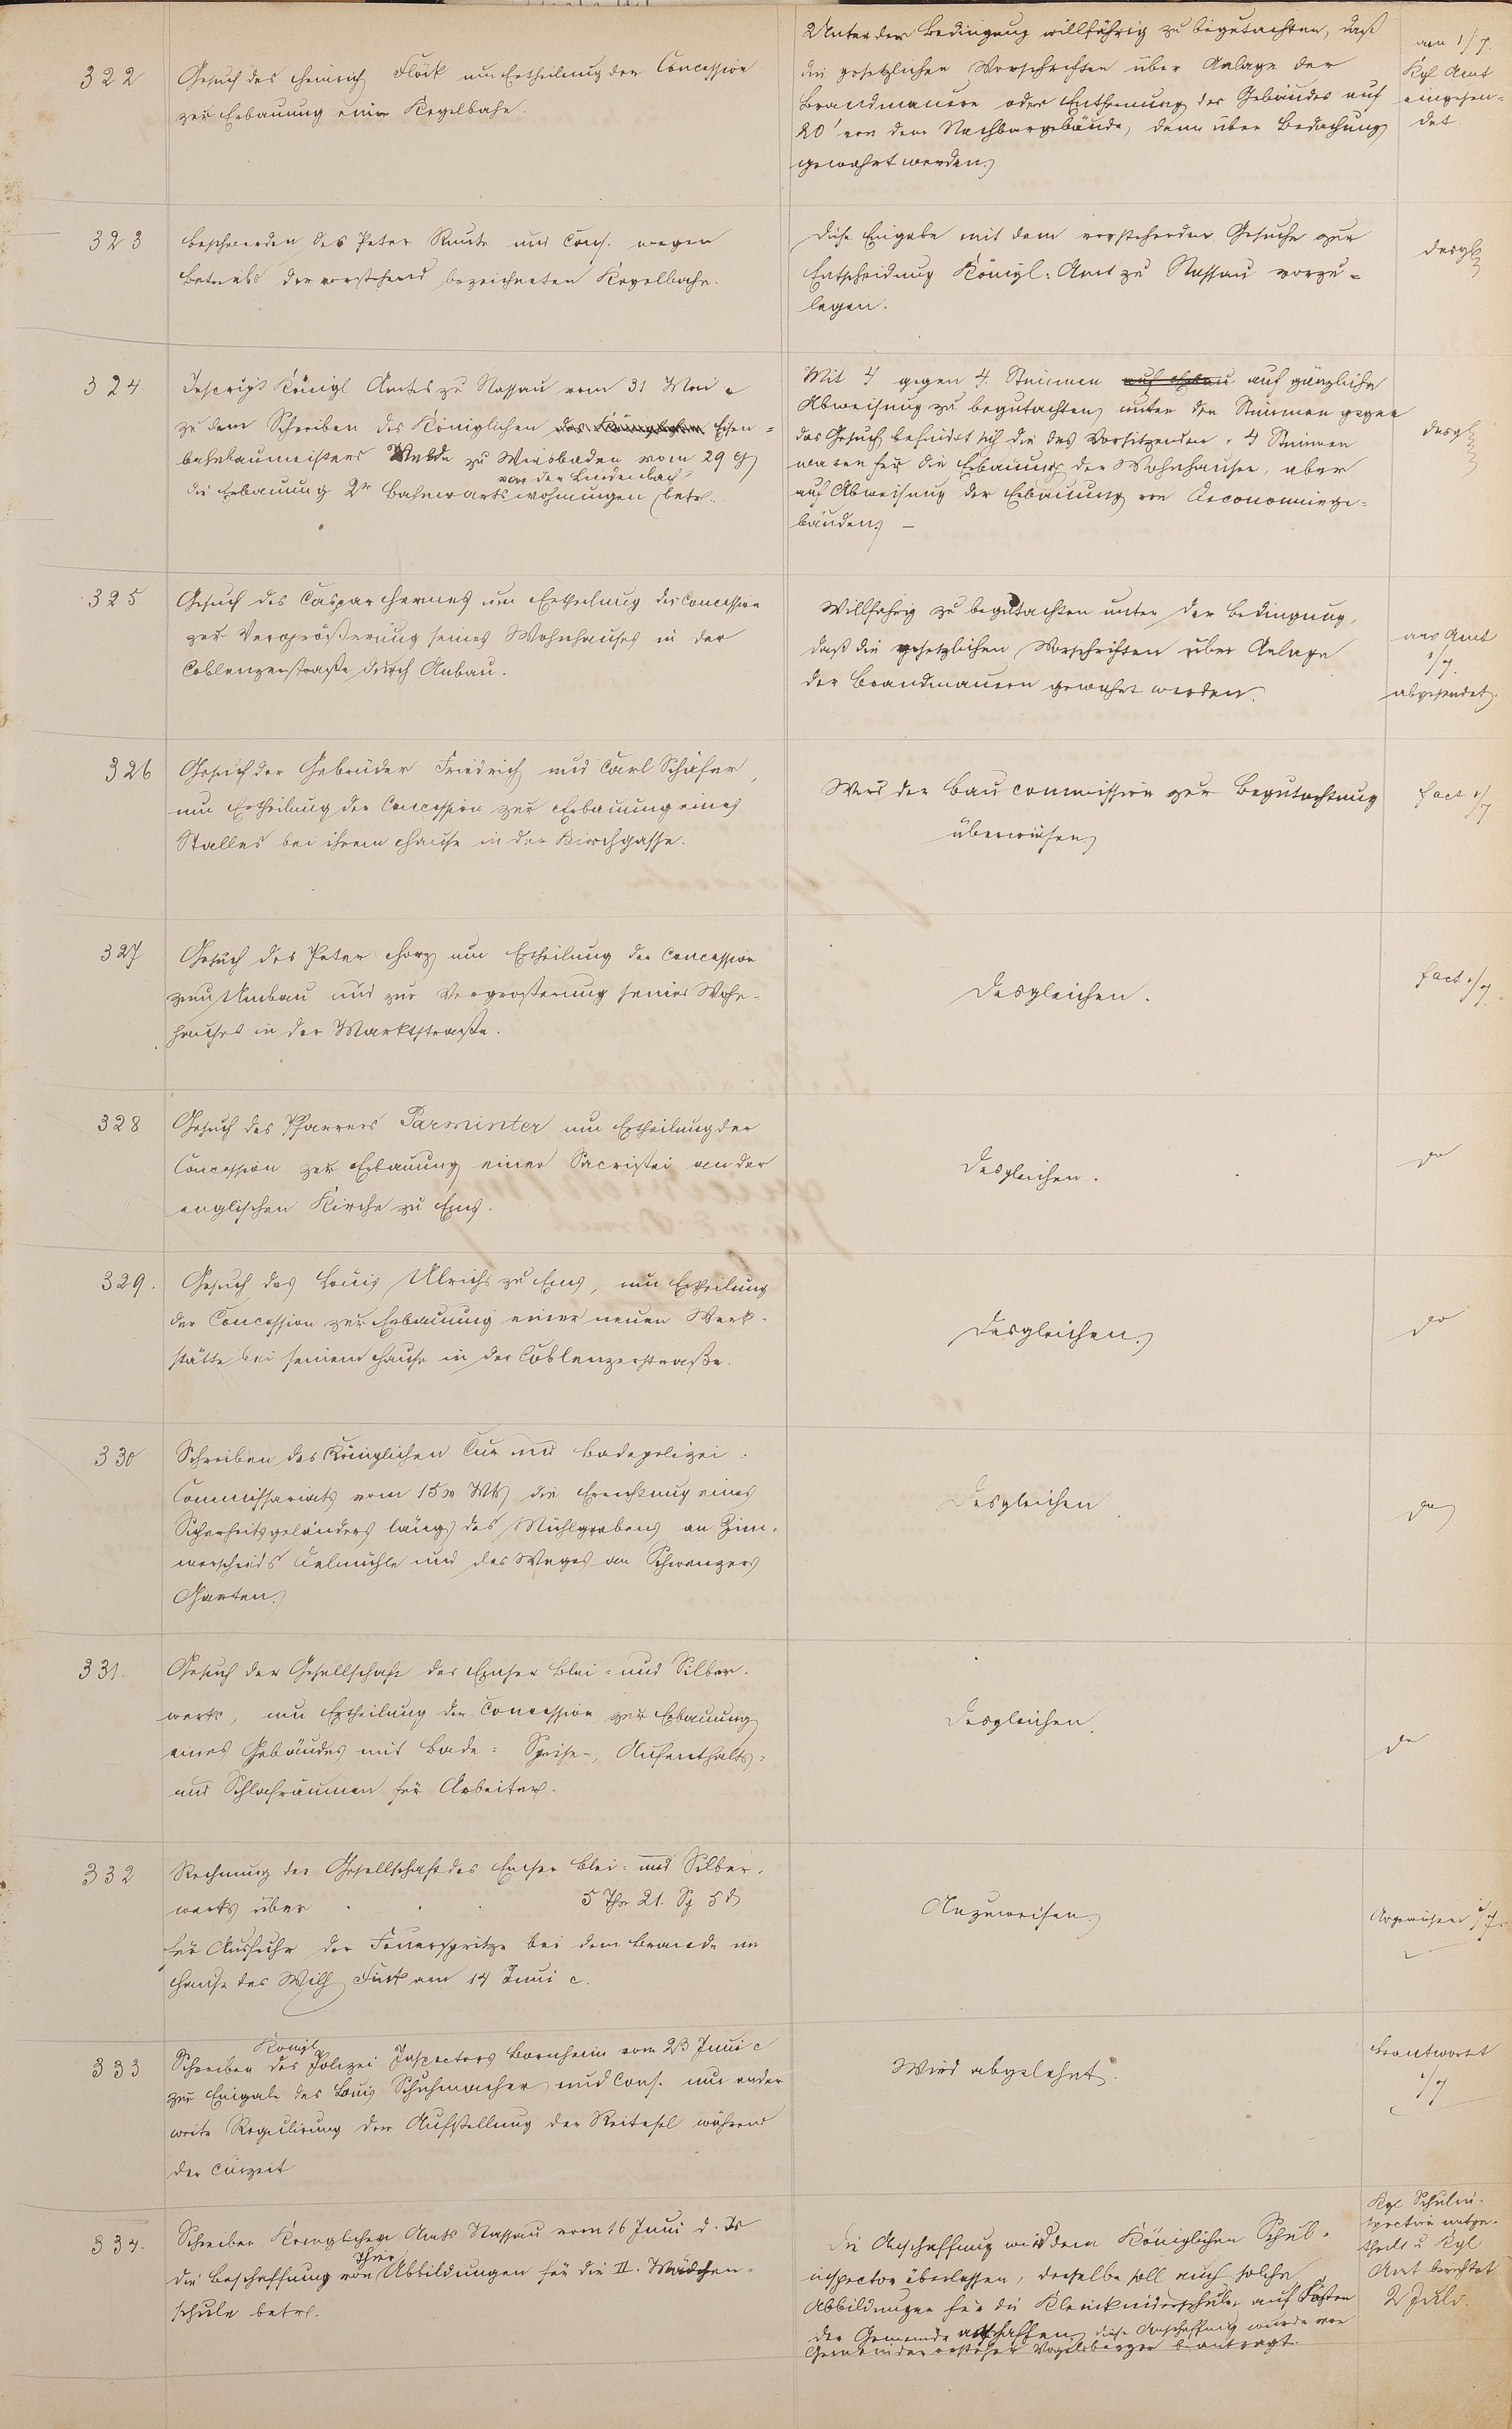 322
Gesuch des Heinrich Flöck um Ertheilung der Concession
zur Erbauung einer Kegelbahn.
Unter der Bedingung willfährig zu begutachten, daß
die gesetzlichen Vorschriften über Anlage der
Brandmauern oder Entfernung des Gebäudes auf
20' von dem Nachbargebäude, dann über Bedachung
gewahrt werden.
am 1/7.
Kgl Amt
eingesen=
det.
323
Beschwerden des Peter und Cons. wegen
Betriebs der vorstehend bezeichneten Kegelbahn.
Diese Eingabe mit dem vorstehenden Gesuche zur
Entscheidung Königl: Amt zu Nassau vorzu=
legen.
desgl
324.
Inscript Königl Amtes zu Nassau vom 31 Mai c
zu dem Schreiben des Königlichen des Königlichen Eisen=
bahnbaumeisters zu Wiesbaden vom 29 ej
vor der Lindenbach
die Erbauung 2r Bahnwartswohnungen betr.
Mit 4 gegen 4 Stimmen auf gänzliche
Abweisung zu begutachten, unter den Stimmen gegen
das Gesuch befindet sich die des Vorsitzenden. 4 Stimmen
waren für die Erbauung der Wohnhäuser, aber
auf Abweisung der Erbauung von Oeconomiege=
bäuden. –
desgl
325
Gesuch des Caspar Hermes um Ertheilung der Concession
zur Vergrößerung seines Wohnhauses in der
Coblenzerstraße durch Anbau.
Willfährig zu begutachten unter der Bedingung,
daß die gesetzlichen Vorschriften über Anlage
der Brandmauern gewahrt werden.
ans Amt
1/7.
abgesendet.
326
Gesuch der Gebrüder Friedrich und Carl Schäfer,
um Ertheilung der Concession zur Erbauung eines
Stalles bei ihrem Hause in der Kirchgasse.
Wird der Baucommission zur Begutachtung
überwiesen
fact 1/7
327
Gesuch des Peter um Ertheilung der Concession
zum Umbau und zur Vergrößerung seines Wohn-
hauses in der Marktstraße.
Desgleichen.
fact 1/7.
328
Gesuch des Pfarrers Parminter um Ertheilung der
Concession zur Erbauung einer Sacristei an der
englischen Kirche zu Ems.
Desgleichen.
do
329.
Gesuch des Louis Ulrichs zu Ems, um Ertheilung
der Concession zur Erbauung einer neuen Werk-
stätte bei seinem Hause in der Coblenzerstraße.
Desgleichen.
do
330
Schreiben des Königlichen Cur und Badepolizei-
Commissariats vom 15 v Mts die Errichtung eines
Sicherheitsgeländers längs des Mühlgrabens an Zim-
merscheids Oelmühle und des Weges an Schwenzers
Garten.
Desgleichen
do
331.
Gesuch der Gesellschaft des Emser Blei- und Silber-
werks, um Ertheilung der Concession zur Erbauung
eines Gebäudes mit Bade- Speise-, Aufenthalts-
und Schlafräumen für Arbeiter.
Desgleichen.
do
332
Rechnung der Gesellschaft des Emser Blei- und Silber-
werks über . . . 5 Thr 21. Sg 5 d
für Ausfuhr der Feuerspritze bei dem Brande im
Hause des Wilh am 14 Juni c.
Anzuweisen.
Angewiesen 1/7
333
Königl
Schreiben des Polizei Inspectors Bornheim vom 23 Juni c
zur Eingabe des Louis Schuhmacher und Cons. um ander
weite Regulirung der Aufstellung der Reitesel während
der Curzeit
Wird abgelehnt.
beantwortet
1/7
334.
Schreiben Königlichen Amts Nassau vom 16 Juni d. Js
Thier
die Beschaffung von Abbildungen für die II. Mädchen-
schule betr.
Die Anschaffung wird dem Königlichen Schul-
inspector überlassen, derselbe soll auch solche
Abbildungen für die Kleinkinderschule auf Kosten
der Gemeinde anschaffen, diese Anschaffung wurde von
Gemeindevorsteher Vogelsberger beantragt.
Kgl Schulin-
spection mitge-
theilt u Kgl
Amt berichtet
2 Juli.